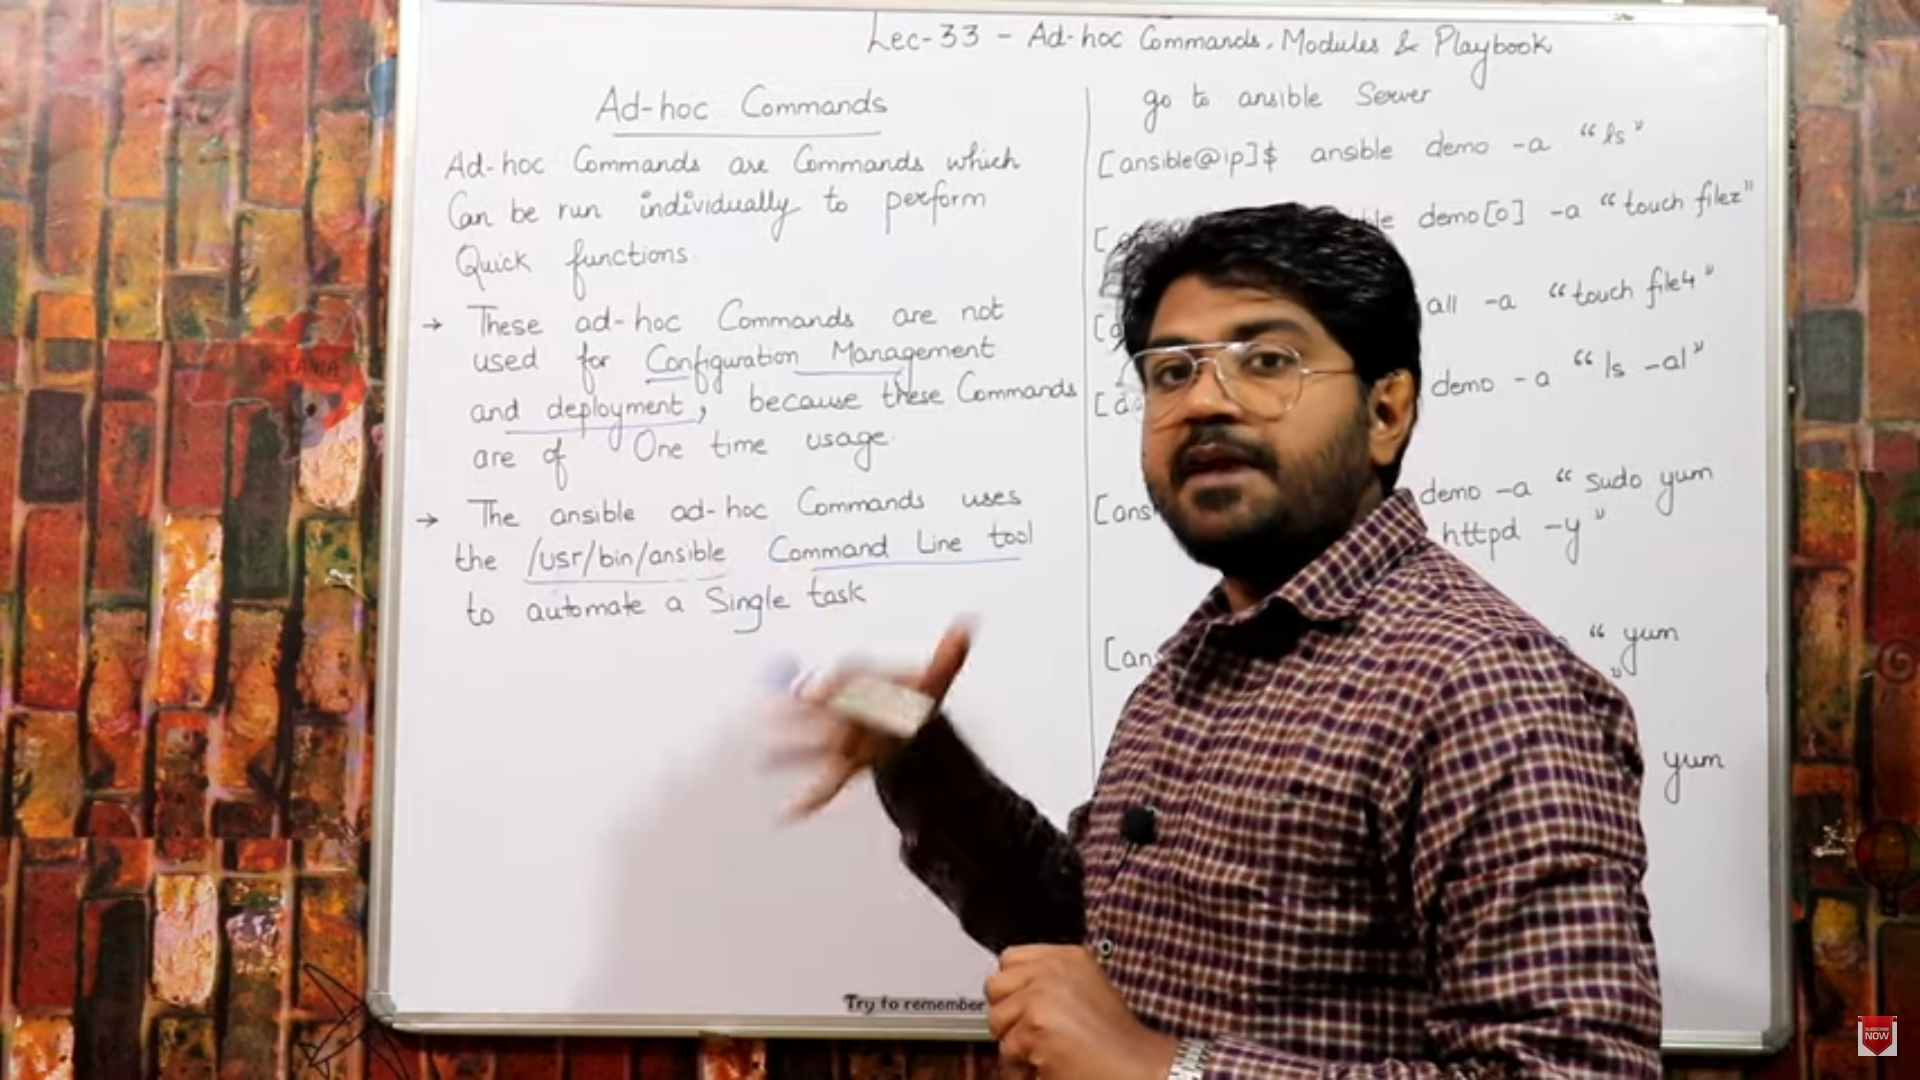 Lec-33 - Ad-hoc Commands, Modules & Playbook
Ad-hoc Commands
Ad-hoc Commands are Commands which
Can be run individually to perform
Quick functions.
→ These ad-hoc Commands are not
used for Configuration Management
and deployment, because these Commands
are of One time usage.
→ The ansible ad-hoc Commands uses
the /usr/bin/ansible Command Line tool
to automate a Single task
go to ansible Server
[ansible@ip]$ ansible demo -a "ls"
demo[0] -a "touch filez"
all -a "touch file4"
demo -a "ls -al"
demo -a "sudo yum
httpd -y"
" yum
"
yum
Try to remember
OCEANIA
SUBSCRIBE
NOW